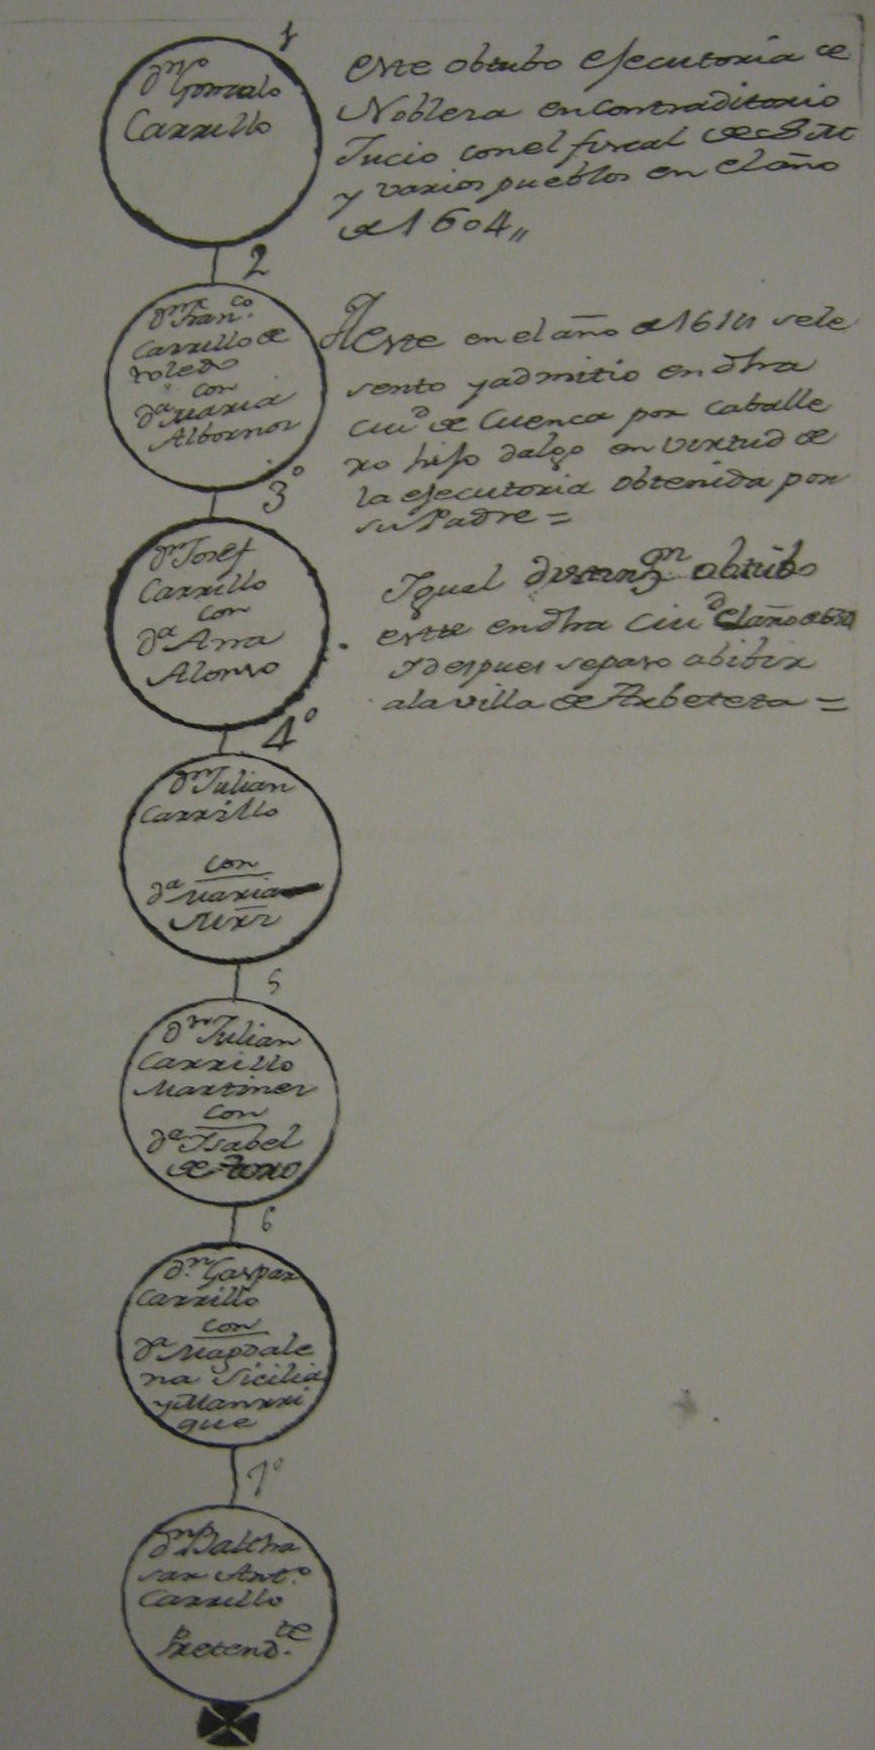 1
Dn Gonzalo
Carrillo
Este obtubo ejecutoria de
Nobleza en contraditorio
Jucio con el fiscal de S. M.
y varios pueblos en el año
de 1604,,
2
Dn Franco.
Carrillo de
toledo
con
Da Maria
Albornoz
A Este en el año de 1614 se le
sento y admitio en dha
ciud de Cuenca por caballe
ro hijo dalgo en virtud de
la ejecutoria obtenida por
su Padre =
3º
Dn Josef
Carrillo
con
Da Anna
Alonso
Igual obtubo
este en dha Ciud el año de
y despues se paso a bibir
a la villa de Arbeteta =
4º
Dn Julian
Carrillo
con
Da Maria
Mrz
5
Dn Julian
Carrillo
Martinez
con
Da Isabel
de toro
6
Dn. Gaspar
Carrillo
con
Da Magdale
na Sicilia
y Manrri
que
7º
Dn Baltha
sar Anto.
Carrillo
Pretendte.